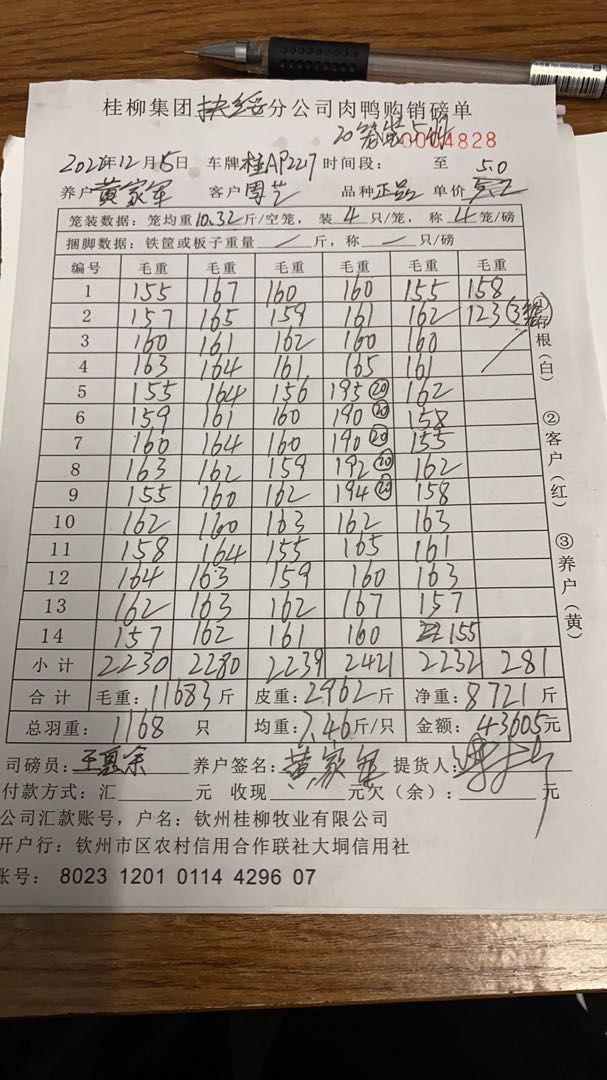 桂柳集团扶绥分公司肉鸭购销磅单
20笼装5只
0004828
2022年12月5日 车牌桂AP2217 时间段: 至 5.0
养户黄家军 客户周艺 品种正品 单价
笼装数据:笼均重10.32斤/空笼,装4只/笼,称4笼/磅
捆脚数据:铁筐或板子重量/斤,称/只/磅
编号 毛重 毛重 毛重 毛重 毛重 毛重
1 155 167 160 160 155 158
2 157 165 159 161 162 123(3笼)
3 160 161 162 160 160
4 163 164 161 165 161
5 155 164 156 195⑳ 162
6 159 161 160 190⑳ 158
7 160 164 160 190⑳ 155
8 163 162 159 192⑳ 162
9 155 160 162 194⑳ 158
10 162 160 163 162 163
11 158 164 155 165 161
12 164 163 159 160 163
13 162 163 162 167 157
14 157 162 161 160 155
小计 2230 2280 2239 2421 2232 281
合计 毛重:11683斤 皮重:2962斤 净重:8721斤
总羽重:1168只 均重:7.46斤/只 金额:43605元
①存根(白)
②客户(红)
③养户(黄)
司磅员: 养户签名:黄家军 提货人:
付款方式:汇 元 收现 元欠(余): 元
公司汇款账号,户名:钦州桂柳牧业有限公司
开户行:钦州市区农村信用合作联社大垌信用社
账号:8023 1201 0114 4296 07